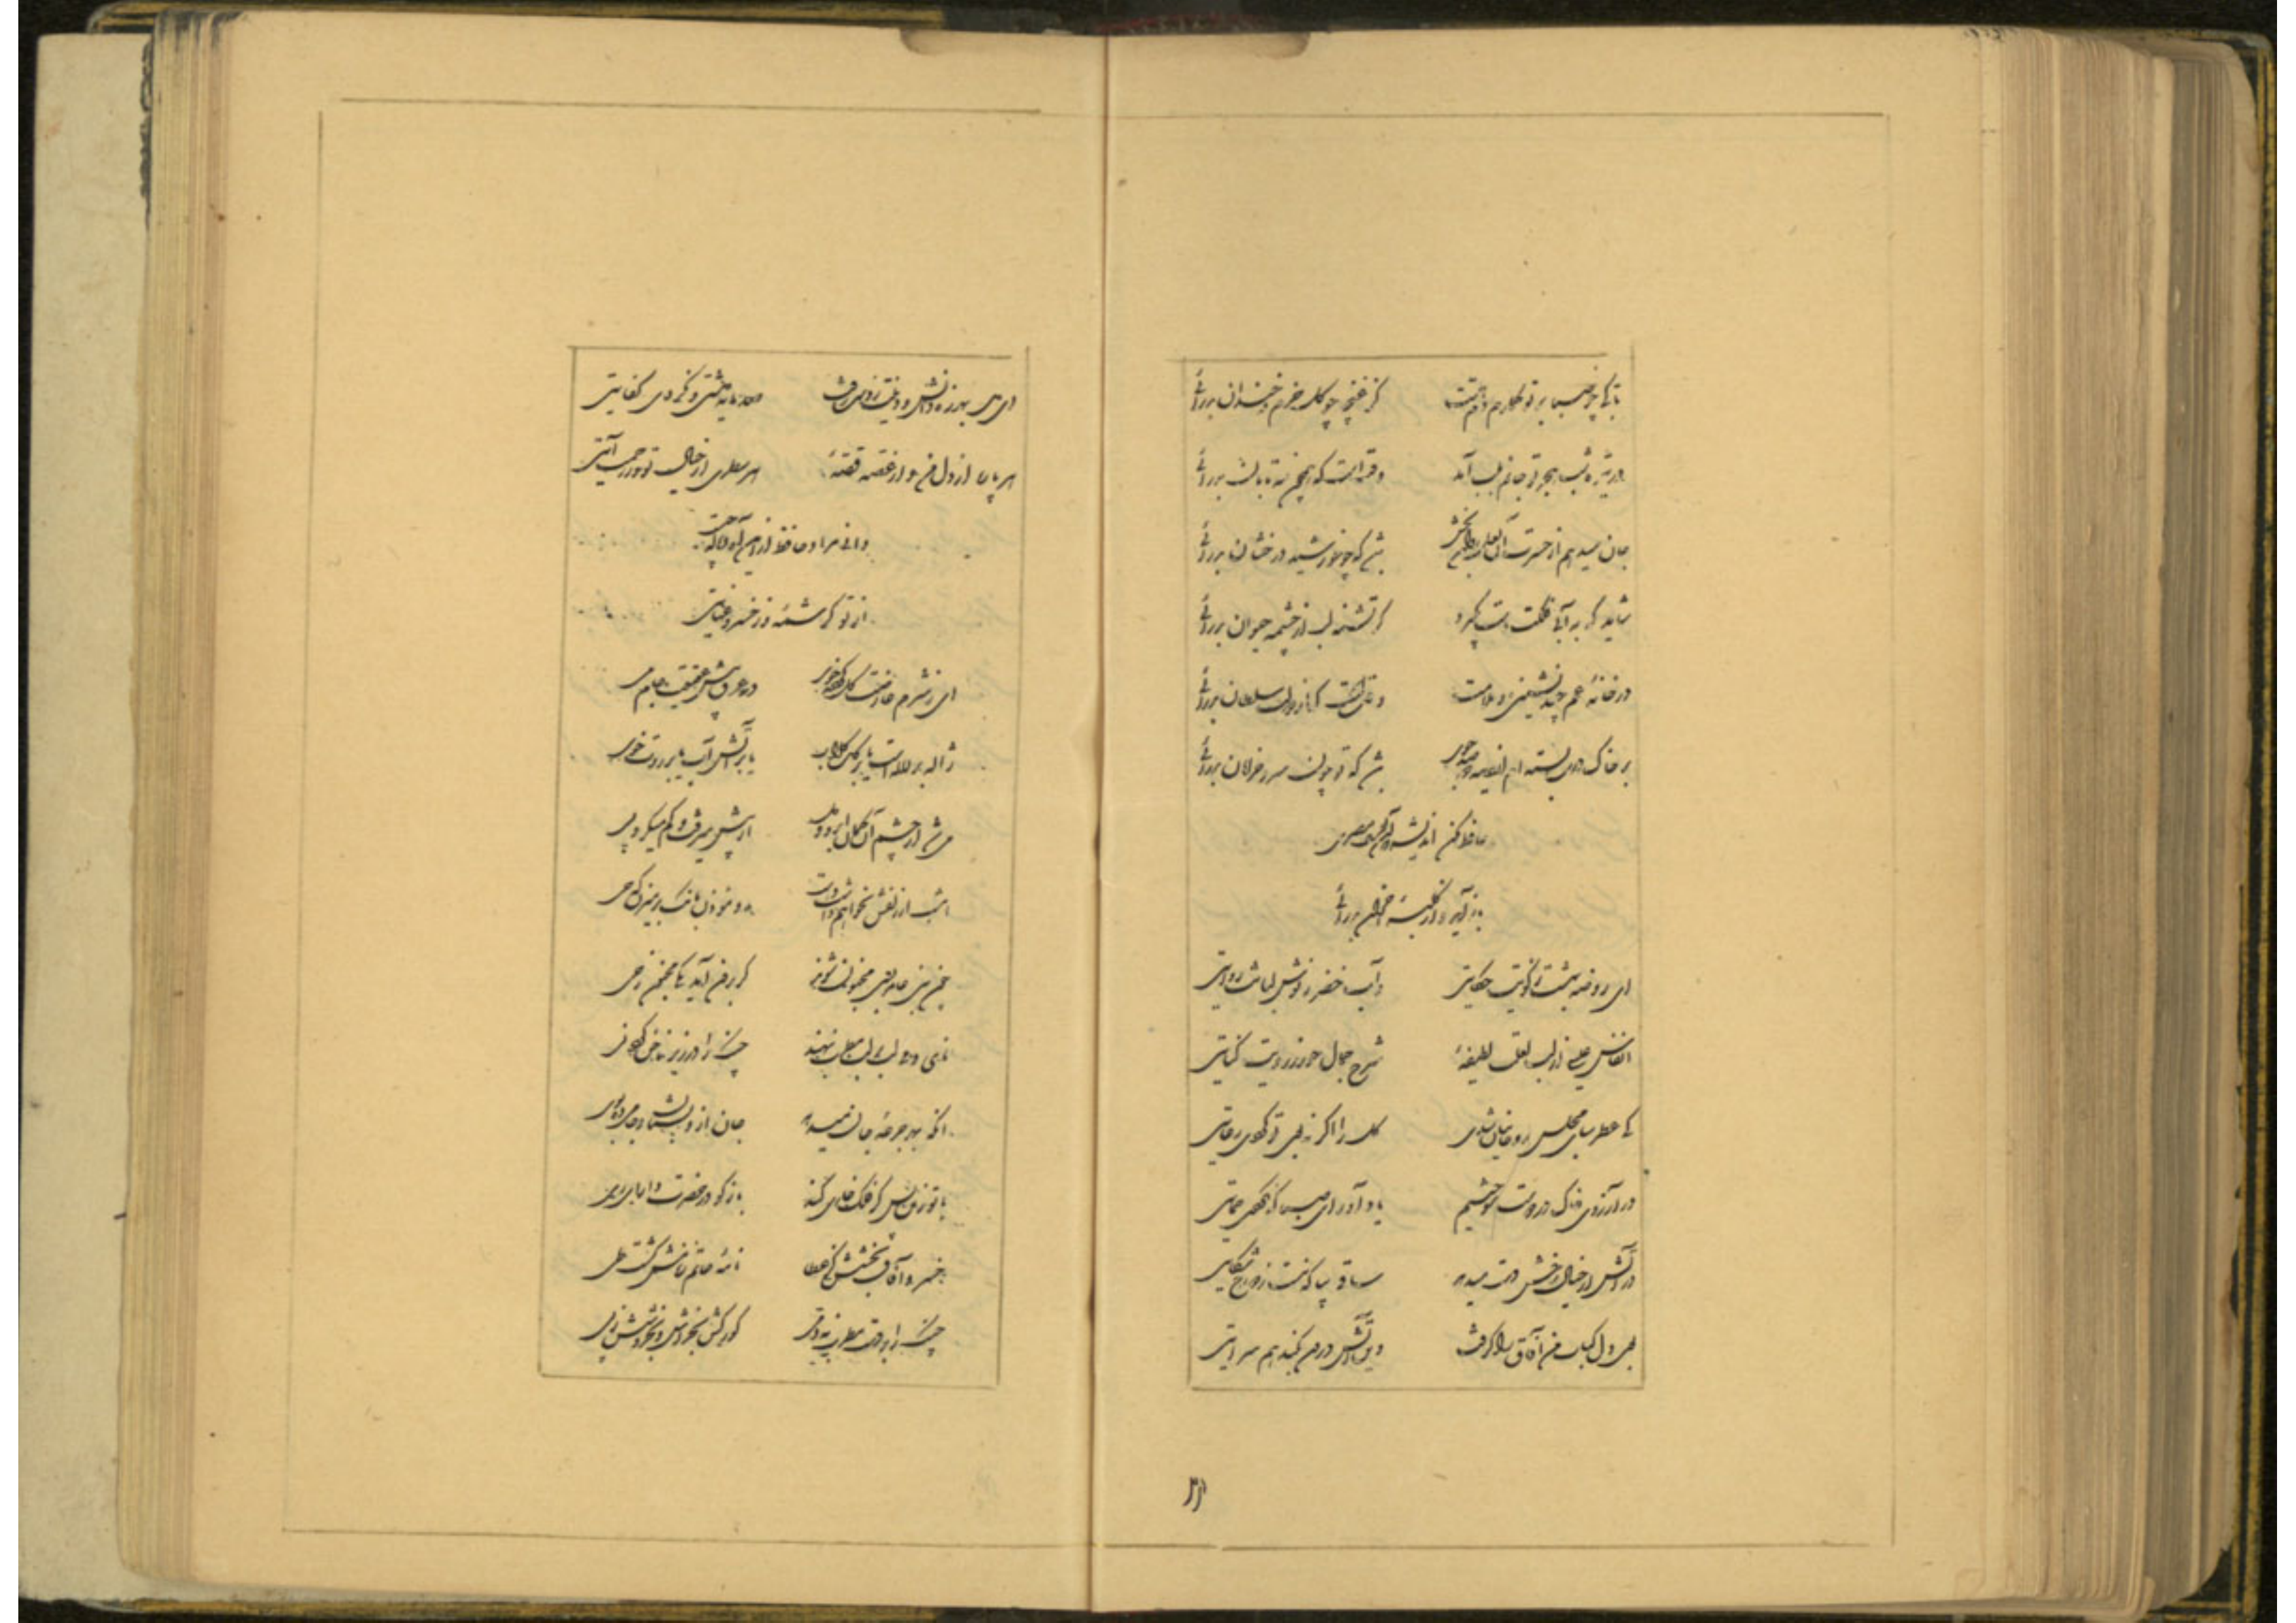 تا کی چو صبا بر تو گمارم دم همت کز غنچه چو گل خرم و خندان بدرآئی
در تیره شب هجر تو جانم بلب آمد وقتست که همچون مه تابان بدرآئی
جان میدهم از حسرت آن لعل روان بخش که چو خورشید درخشان بدرآئی
شاید که به آبی فلکت دست بگیرد گر تشنه لب از چشمه حیوان بدرآئی
در خانه غم چند نشینی و ملامت وقتست که از دولت سلطان بدرآئی
بر خاک درت بسته ام از دیده دو صد جوی که تو چون سرو خرامان بدرآئی
حافظ مکن اندیشه که آن یوسف مصری
باز آید و از کلبه احزان بدرآئی
ای روضه بهشت ز کویت حکایتی و آب خضر ز نوش لبانت روایتی
انفاس عیسی از لب لعلت لطیفه شرح جمال حور ز رویت کنایتی
کی عطرسای مجلس روحانیان شدی گل را اگر نه بوی تو کردی رعایتی
در آرزوی خاک در دوست سوختیم یاد آور ای صبا که نکردی حمایتی
در آتش ار خیال رخش دست میدهد ساقی بیا که نیست ز دوزخ شکایتی
بوی دل کباب من آفاق را گرفت وین آتش درون بکند هم سرایتی
ای دل بهرزه دانش و وقتت ز دست رفت صد مایه داشتی و نکردی کفایتی
هر پاره از دل من و از غصه قصه هر سطری از خیال تو و رحمت آیتی
دانی مراد حافظ ازین آه و ناله چیست
از تو کرشمه و ز خسرو عنایتی
ای ز شرم عارضت گل کرده خوی در عرق پیش عقیقت جام می
ژاله بر لاله است یا بر گل گلاب یا بر آتش آب یا بر روت خوی
می شد از چشم آن کمان ابرو و دل از پیش میرفت و گم میکرد پی
امشب از زلفش نخواهم داشت دست رو مؤذن بانگ بر میزن که حی
چنگ را در زیر ناخن کرد نی
آنکه بهر جرعه جان میدهد جان ازو بستان و جامی ده بوی
باز گو در حضرت دارای ری
خسرو آفاق بخشش کز عطا نامه حاتم ز نامش گشت طی
چنگ را بر دست مطرب نه دمی گو رگش بخراش و بخروشش ز پی